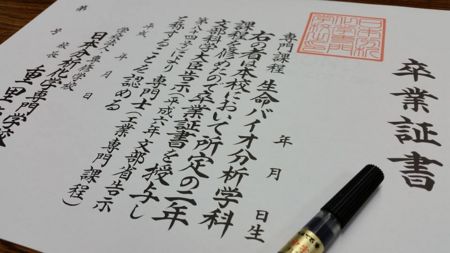 卒業証書
年 月 日生
専門課程 生命バイオ分析学科
右の者は本校において所定の二年
課程を修めたので卒業証書を授与し
文部科学大臣告示(平成六年文部省告示
第八十四号)により 専門士(工業専門課程)
を称することを認める
平成 年 月 日
学校法人
日本分析化学専門学校
学校長 重里
第 号